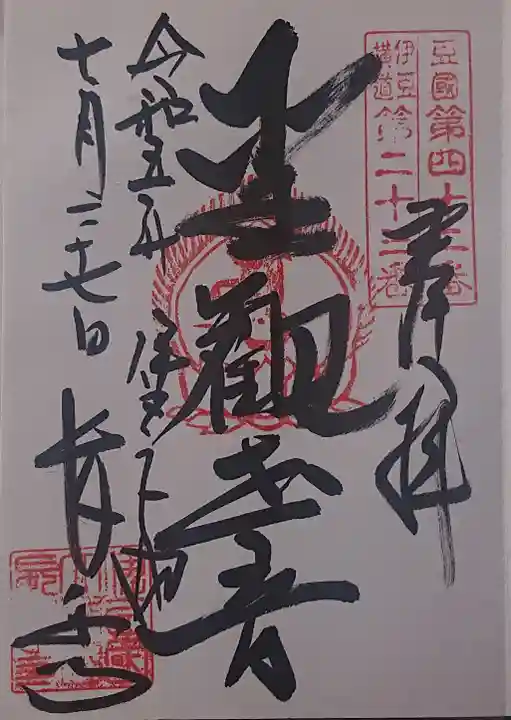 豆國第四十三番
伊豆横道第二十三番
奉拝
聖觀世音
令和五年
七月二十七日
伊豆下田